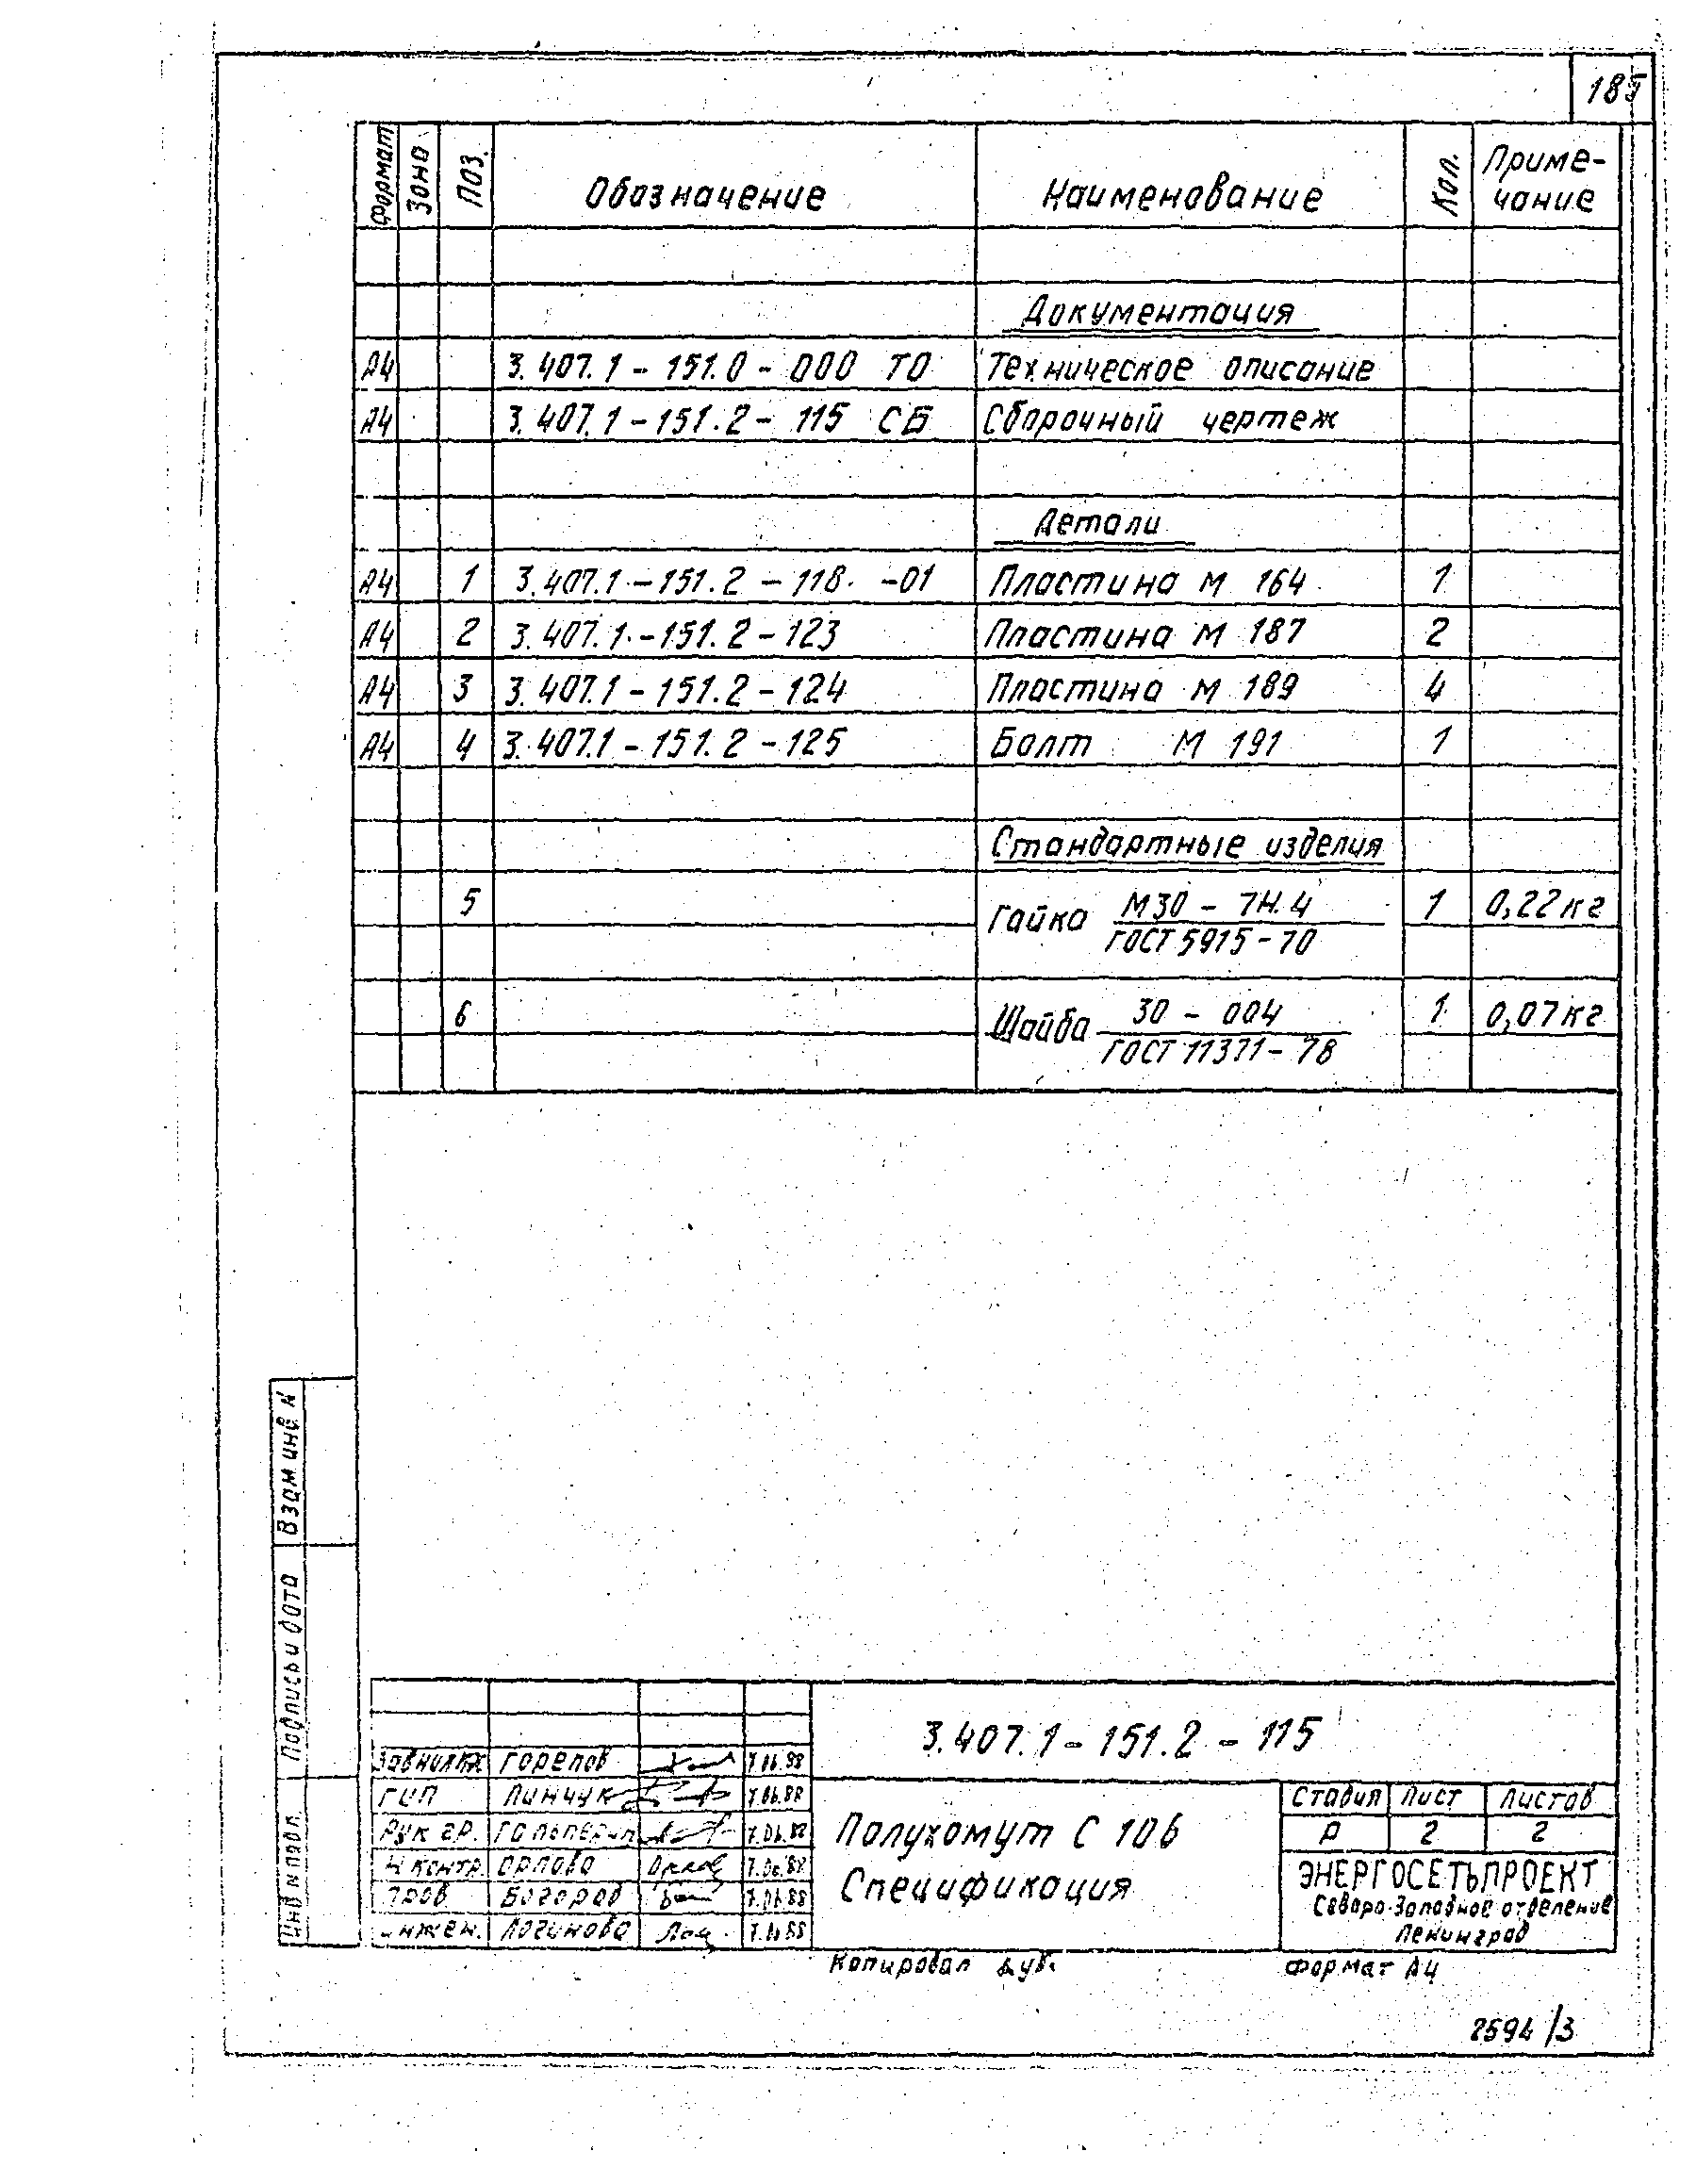 185
Формат Зона Поз. Обозначение Наименование Кол. Приме-
чание
Документация
А4 3.407.1-151.0-000 ТО Техническое описание
А4 3.407.1-151.2-115 СБ Сборочный чертеж
Детали
А4 1 3.407.1-151.2-118 -01 Пластина М 164 1
А4 2 3.407.1-151.2-123 Пластина М 187 2
А4 3 3.407.1-151.2-124 Пластина М 189 4
А4 4 3.407.1-151.2-125 Болт М 191 1
Стандартные изделия
5 Гайка М30-7Н.4 1 0,22кг
ГОСТ 5915-70
6 Шайба 30-004 1 0,07кг
ГОСТ 11371-78
Взам инв N
Подпись и дата
Инв N подл.
3.407.1-151.2-115
Горелов 7.06.88
ГИП Линчук 7.06.88
Рук гр. Гальперин 7.06.88
Н контр. Орлова 7.06.88
Пров Богоров 7.06.88
Инжен. Логинова 7.06.88
Полухомут С 106
Спецификация
Стадия Лист Листов
Р 2 2
ЭНЕРГОСЕТЬПРОЕКТ
Северо-Западное отделение
Ленинград
Копировал
Формат А4
2594/3